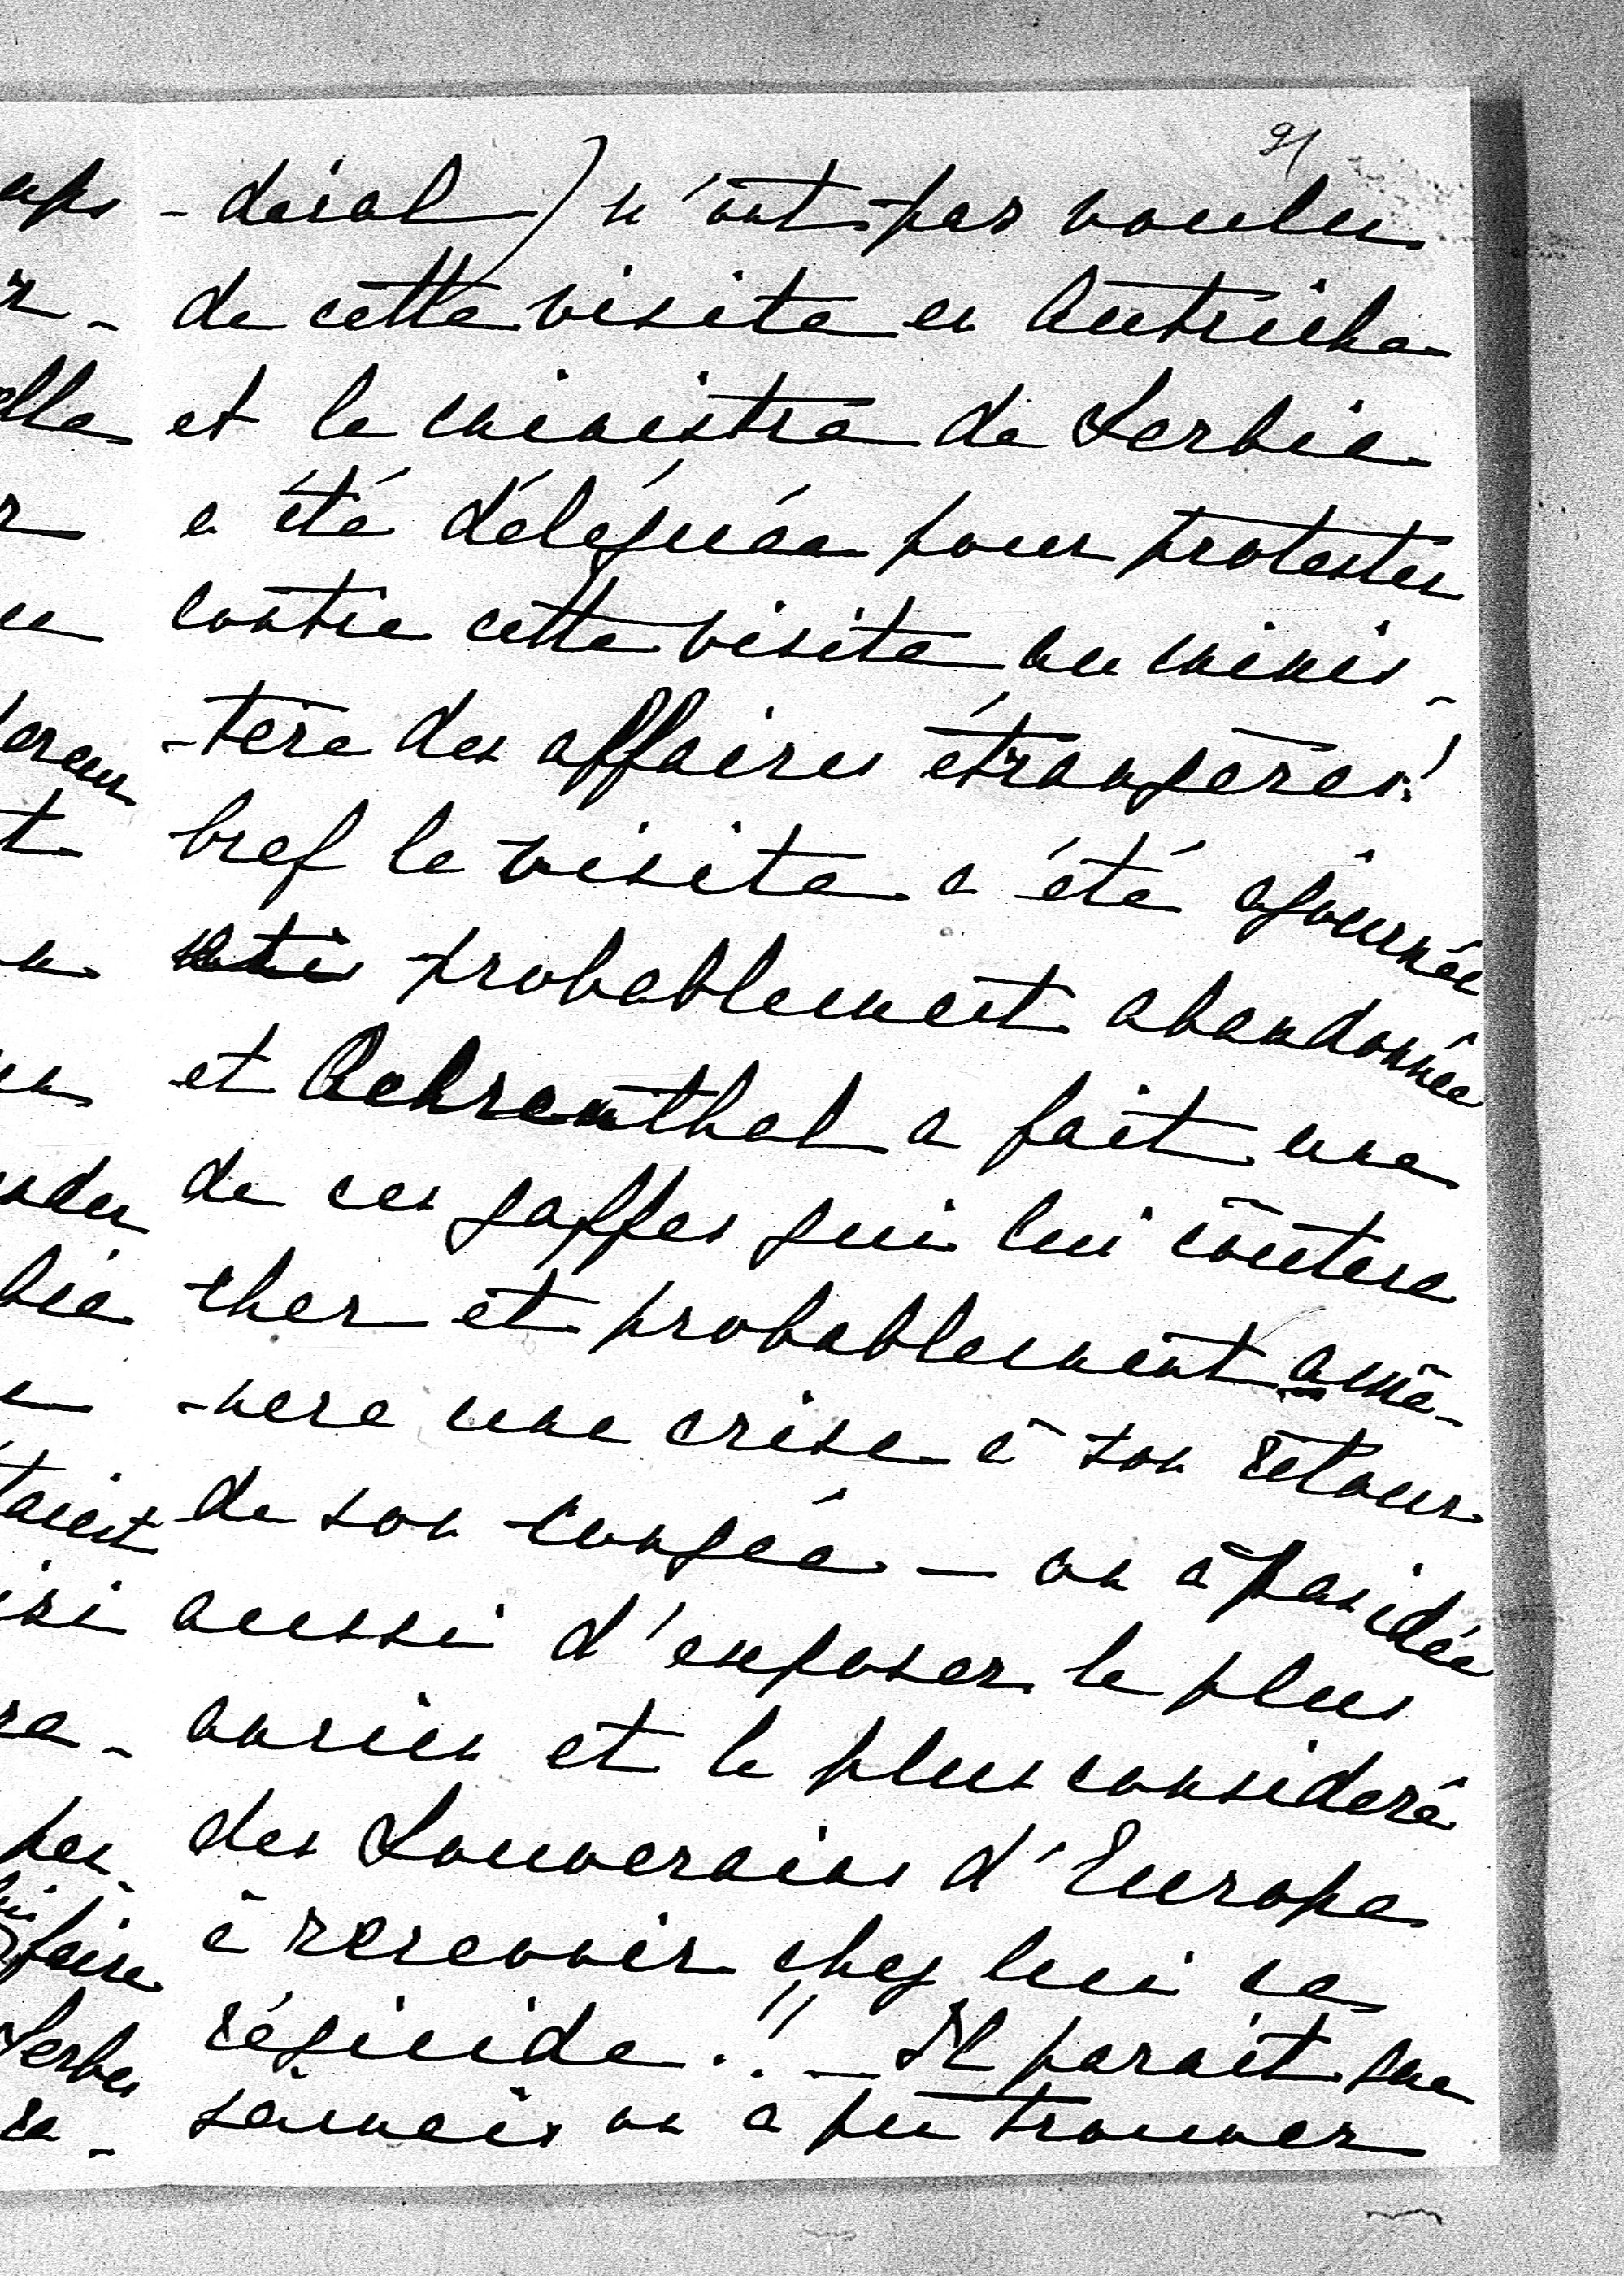 91
-déral) n'ont pas voulu
de cette visite en Autriche
et le ministre de Serbie
a été déléguée pour protester
contre cette visite au minis-
-tère des affaires étrangères!
bref la visite a été ajournée
probablement abandonnée
et Aehrenthal a fait une
de ces gaffes qui lui coutera
cher et probablement amè-
-nera une crise à son retour
de son congée — on a pas idée
aussi d'exposer le plus
ancien et le plus consideré
des Souverains d'Europe
à recevoir chez lui ce
régicide!! — Il parait que
jamais on a pu trouver